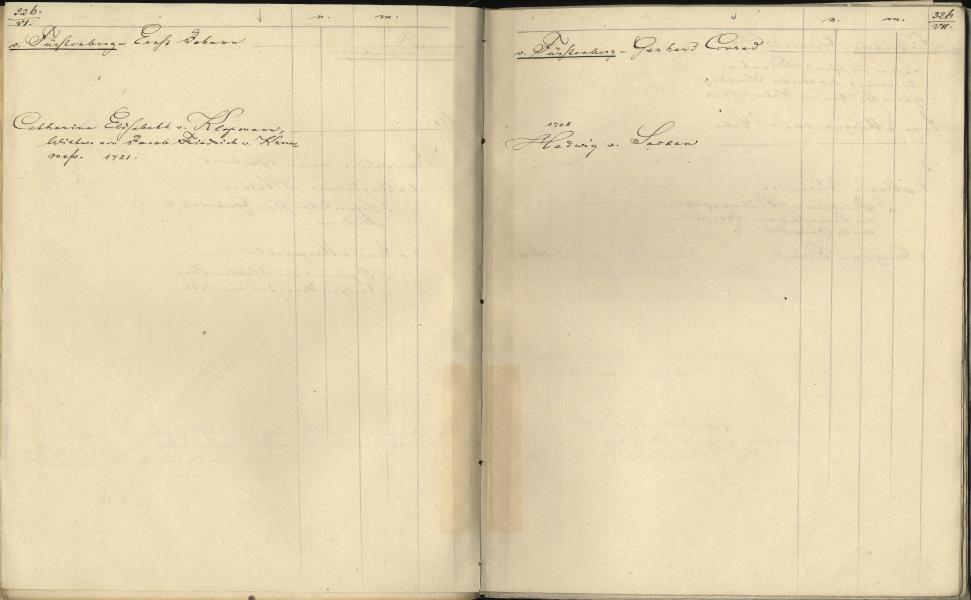 326.
VI.
n.
m.
v. Fürstenberg - Ernst Johann
Catharina Elisabeth v. Klopmann,
Wittwe von Jacob Friedrich v. Krum
mess. 1721.
n.
m.
326
VII.
v. Fürstenberg - Gerhard Conrad
1708
Hedwig v. Sacken